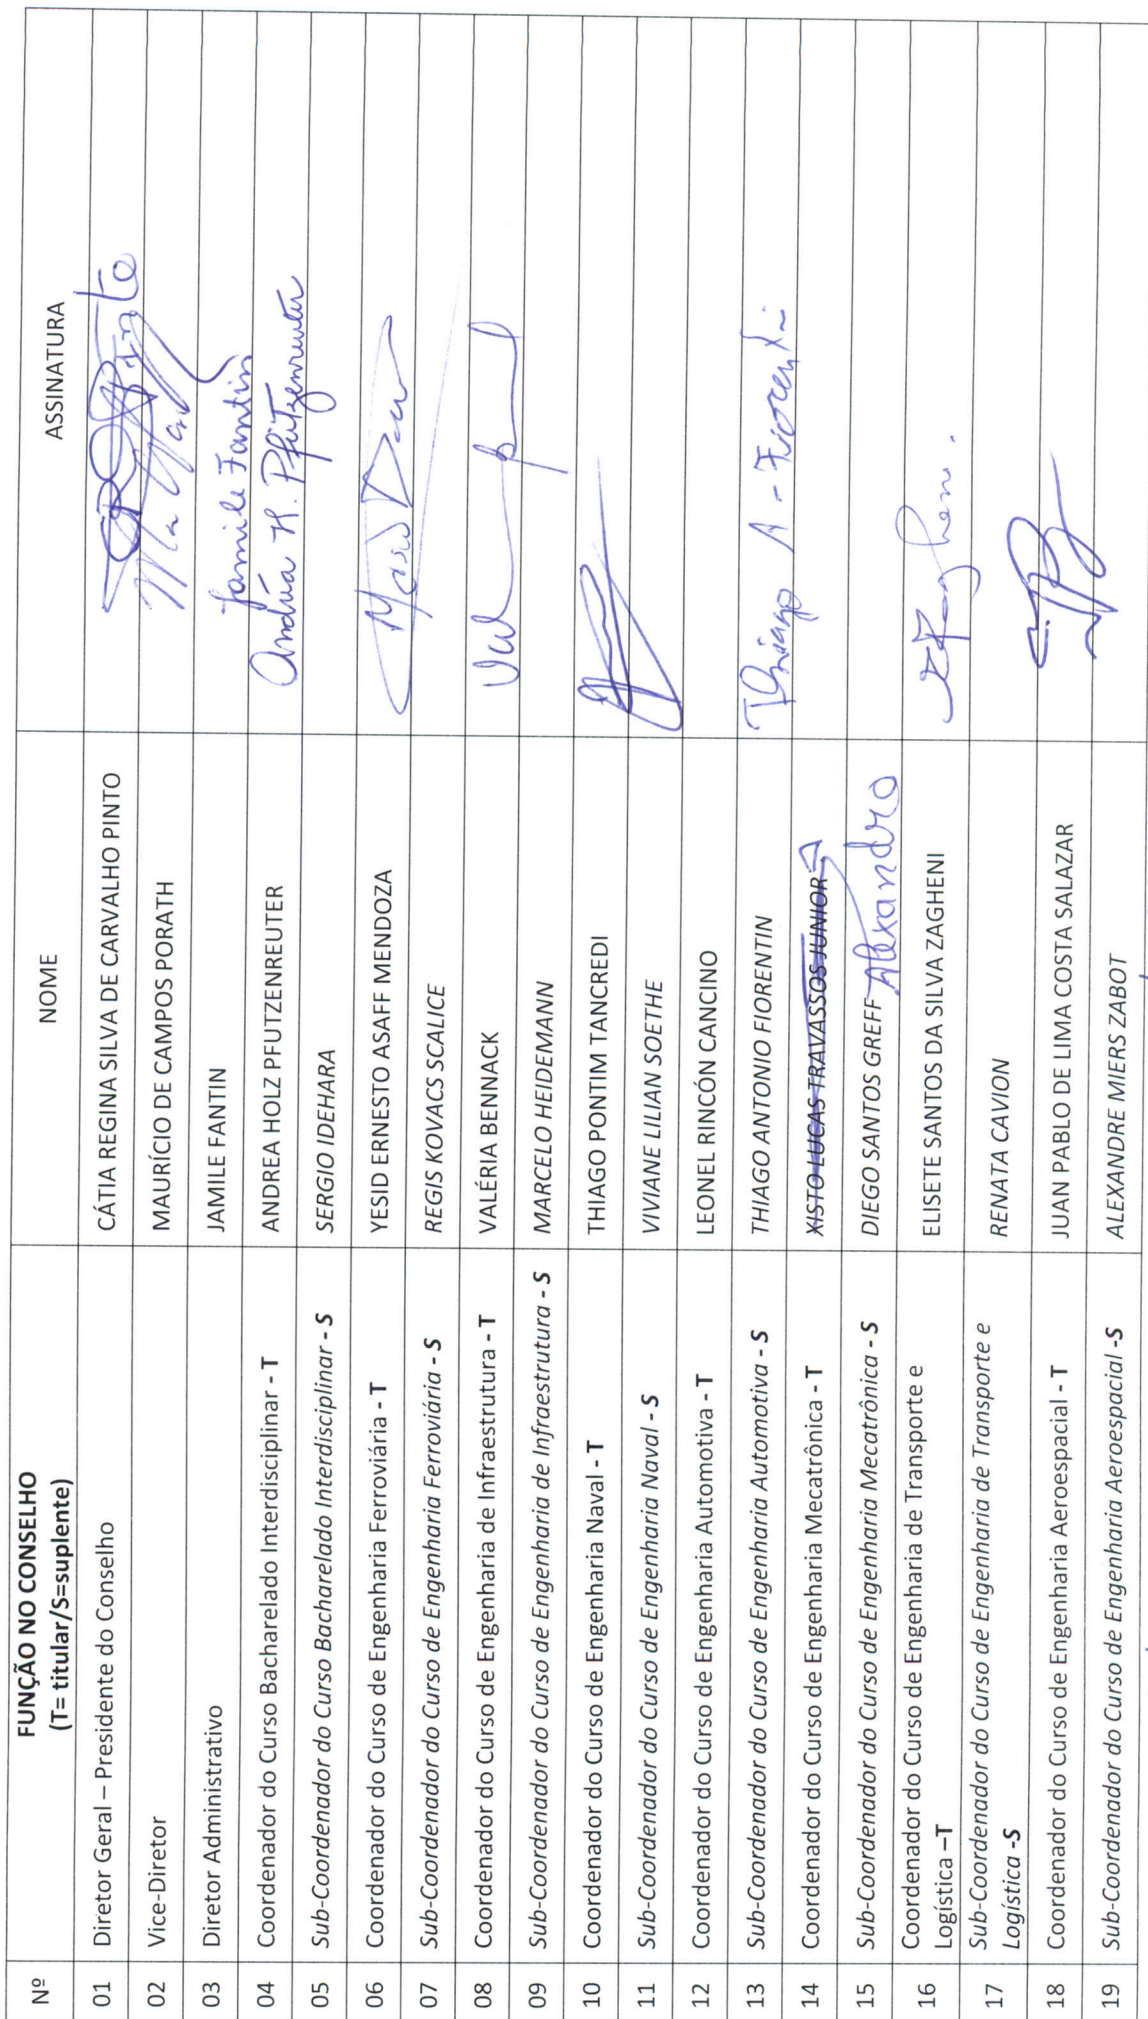 Nº FUNÇÃO NO CONSELHO (T= titular/S=suplente) NOME ASSINATURA
01 Diretor Geral – Presidente do Conselho CÁTIA REGINA SILVA DE CARVALHO PINTO
02 Vice-Diretor MAURÍCIO DE CAMPOS PORATH
03 Diretor Administrativo JAMILE FANTIN Jamile Fantin
04 Coordenador do Curso Bacharelado Interdisciplinar - T ANDREA HOLZ PFUTZENREUTER Andréa H. Pfützenreuter
05 Sub-Coordenador do Curso Bacharelado Interdisciplinar - S SERGIO IDEHARA
06 Coordenador do Curso de Engenharia Ferroviária - T YESID ERNESTO ASAFF MENDOZA
07 Sub-Coordenador do Curso de Engenharia Ferroviária - S REGIS KOVACS SCALICE
08 Coordenador do Curso de Engenharia de Infraestrutura - T VALÉRIA BENNACK
09 Sub-Coordenador do Curso de Engenharia de Infraestrutura - S MARCELO HEIDEMANN
10 Coordenador do Curso de Engenharia Naval - T THIAGO PONTIM TANCREDI
11 Sub-Coordenador do Curso de Engenharia Naval - S VIVIANE LILIAN SOETHE
12 Coordenador do Curso de Engenharia Automotiva - T LEONEL RINCÓN CANCINO
13 Sub-Coordenador do Curso de Engenharia Automotiva - S THIAGO ANTONIO FIORENTIN Thiago A. Fiorentin
14 Coordenador do Curso de Engenharia Mecatrônica - T XISTO LUCAS TRAVASSOS JUNIOR
15 Sub-Coordenador do Curso de Engenharia Mecatrônica - S DIEGO SANTOS GREFF Alexandro
16 Coordenador do Curso de Engenharia de Transporte e Logística –T ELISETE SANTOS DA SILVA ZAGHENI
17 Sub-Coordenador do Curso de Engenharia de Transporte e Logística -S RENATA CAVION
18 Coordenador do Curso de Engenharia Aeroespacial - T JUAN PABLO DE LIMA COSTA SALAZAR
19 Sub-Coordenador do Curso de Engenharia Aeroespacial -S ALEXANDRE MIERS ZABOT